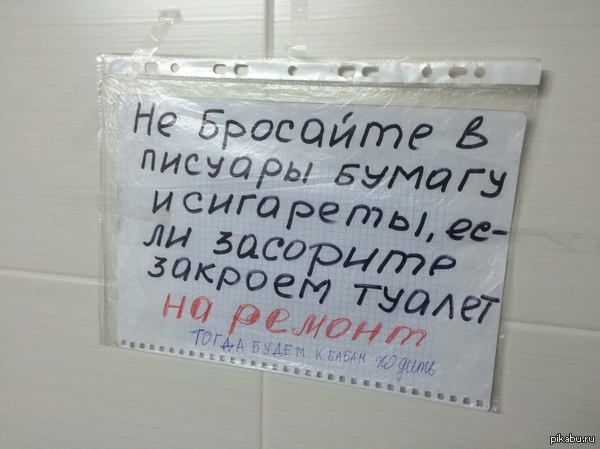 Не бросайте в
писуары бумагу
и сигареты, ес-
ли засорите
закроем туалет
на ремонт
ТОГДА БУДЕМ К БАБАМ ХОДИТЬ
pikabu.ru